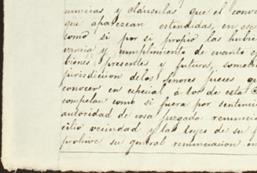 nuncias y cláusulas que el conoc
que aparezcan estendidas, en esp
como si por si propio las hubie
vancia y cumplimiento de cuanto
bienes presentes y futuros, somet
jurisdiccion de los señores jueces que
conocer en especial, á los de esta
compelan como si fuera por sentencia
autoridad de cosa juzgada renuncia
cilio vecindad y las leyes de su f
prohive su general renunciacion en